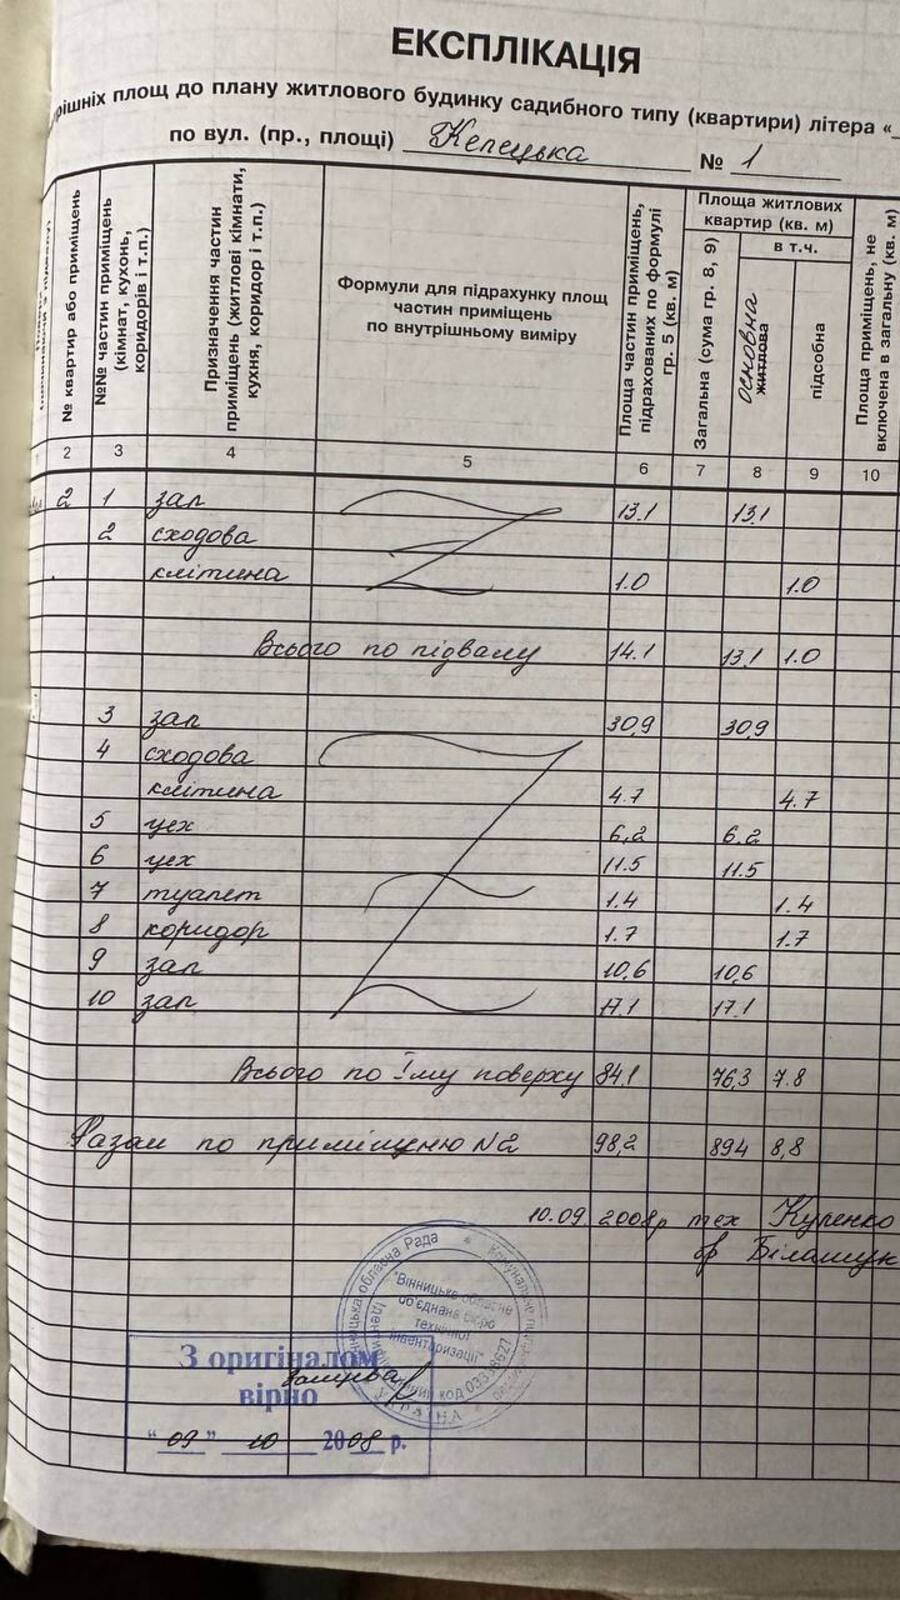 ЕКСПЛІКАЦІЯ
площ до плану житлового будинку садибного типу (квартири) літера «
по вул. (пр., площі) Келецька № 1
№ квартир або приміщень
№№ частин приміщень (кімнат, кухонь, коридорів і т.п.)
Призначення частин приміщень (житлові кімнати, кухня, коридор і т.п.)
Формули для підрахунку площ
частин приміщень
по внутрішньому виміру
Площа частин приміщень, підрахованих по формулі гр. 5 (кв. м)
Площа житлових квартир (кв. м)
Загальна (сума гр. 8, 9)
в т.ч.
основна
житлова
підсобна
Площа приміщень, не включена в загальну (кв. м)
2 3 4 5 6 7 8 9 10
2 1 зал 13.1 13.1
2 сходова
клітина 1.0 1.0
Всього по підвалу 14.1 13,1 1.0
3 зал 30,9 30,9
4 сходова
клітина 4.7 4.7
5 цех 6,2 6.2
6 цех 11.5 11.5
7 туалет 1.4 1.4
8 коридор 1.7 1.7
9 зал 10,6 10,6
10 зал 17.1 17.1
Всього по Іму поверху 84,1 76,3 7.8
Разом по приміщеню N2 98,2 894 8,8
10.09. 2008р тех Куленко
бр
Вінницька обласна Рада
Комунальне
"Вінницьке обласне
об'єднане бюро
технічної
інвентаризації"
код
УКРАЇНА
З оригіналом
вірно
"09" 10 2008 р.